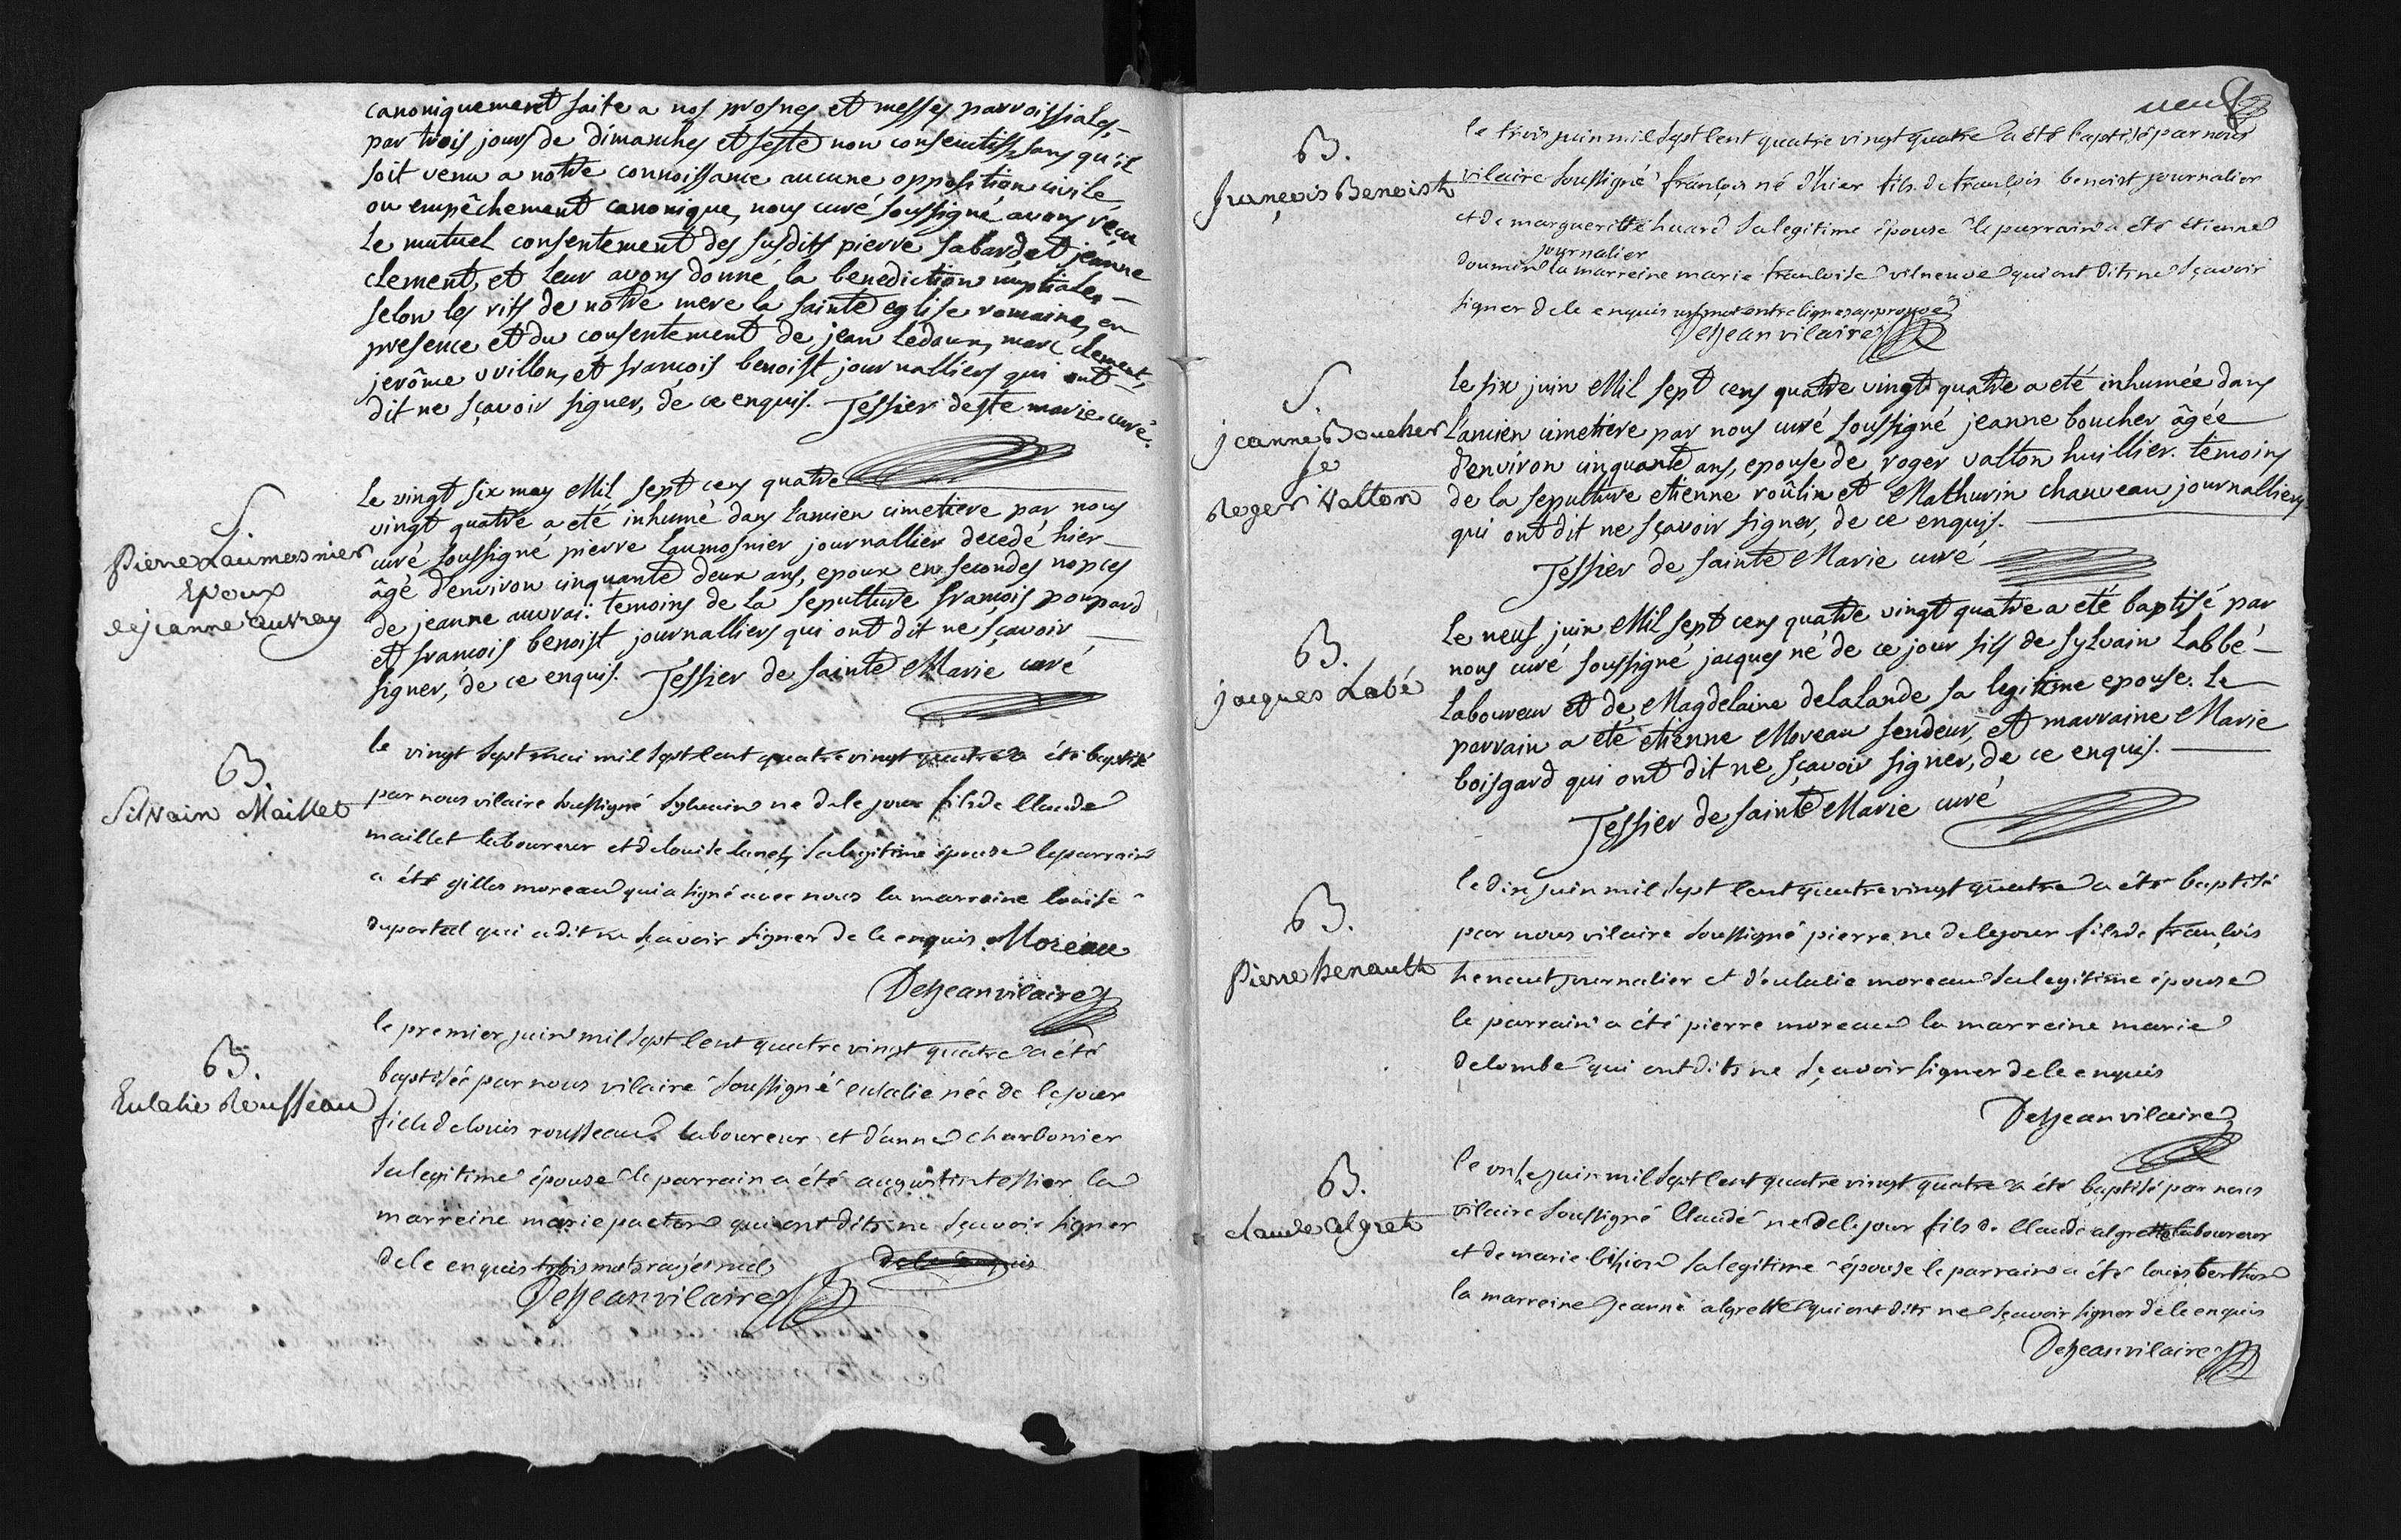 canoniquement faite a nos prosnes et messes parroissiales,
par trois jours de dimanches et feste non consecutifs, sans qu'il
soit venu a notre connoissance aucune opposition civile,
ou empêchement canonique, nous curé soussigné avons reçu
le mutuel consentement des susdits pierre sabard, et jeanne
clement, et leur avons donné la benediction nuptiale,
selon les rits de notre mere la sainte eglise romaine, en
presence et du consentement de jean Ledoux, marc clement,
jerôme vrillon, et francois benoist journalliers qui ont
dit ne sçavoir signer, de ce enquis. Tessier de ste marie curé.
S.
Pierre Laumosnier
Epoux
de jeanne auvray
Le vingt six may Mil sept cens quatre
vingt quatre a eté inhumé dans l'ancien cimetiere par nous
curé soussigné pierre Laumosnier journallier decedé hier
âgé d'environ cinquante deux ans, epoux en secondes nopces
de jeanne auvrai. temoins de la sepulture francois poupard
et francois benoist journalliers qui ont dit ne sçavoir
signer, de ce enquis. Tessier de sainte Marie curé
B.
Silvain Maillet
le vingt sept mai mil sept cent quatre vingt quatre a été baptisé
par nous vicaire soussigné sylvain né de ce jour fils de Claude
maillet laboureur et de louise sa legitime épouse le parrain
a été gilles moreau qui a signé avec nous la marreine louise
duportal qui a dit ne sçavoir signer de ce enquis. Moreau
Dejean vicaire
B.
Eulalie Rousseau
le premier juin mil sept cent quatre vingt quatre a été
baptisée par nous vicaire soussigné eulalie née de ce jour
fille de louis rousseau laboureur et d'anne charbonier
sa legitime épouse le parrain a été augustin tessier la
marreine marie pacton qui ont dits ne sçavoir signer
de ce enquis trois mots rayés nuls de ce enquis
Dejean vicaire
neuf
B.
françois Benoist
le trois juin mil sept cent quatre vingt quatre a été baptisé par nous
vicaire soussigné françois né d'hier fils de françois benoist journalier
et de marguerite huard sa legitime épouse le parrain a été étienne
journalier
doumin la marreine marie francoise vilneuve qui ont dits ne sçavoir
signer de ce enquis un mot entre lignes approuvé
Dejean vicaire
S.
jeanne Boucher
fe
Roger Vatton
Le six juin Mil sept cens quatre vingt quatre a eté inhumée dans
l'ancien cimetiere par nous curé soussigné jeanne boucher âgée
d'environ cinquante ans, epouse de roger vatton huillier. temoins
de la sepulture etienne roûlin et Mathurin chauveau journalliers
qui ont dit ne sçavoir signer, de ce enquis.
Tessier de sainte Marie curé
B.
jacques Labé
Le neuf juin Mil sept cens quatre vingt quatre a eté baptisé par
nous curé soussigné jacques né de ce jour fils de sylvain Labbé
Laboureur et de Magdelaine delalande sa legitime epouse. Le
parrain a eté etienne Moreau fendeur, et marraine Marie
boisgard qui ont dit ne sçavoir signer, de ce enquis.
Tessier de sainte Marie curé
B.
Pierre henault
le dix juin mil sept cent quatre vingt quatre a été baptisé
par nous vicaire soussigné pierre né de ce jour fils de françois
henaut journalier et d'eulalie moreau sa legitime épouse
le parrain a été pierre moreau la marreine marie
delombe qui ont dits ne sçavoir signer de ce enquis
Dejean vicaire
B.
claude algret
le onze juin mil sept cent quatre vingt quatre a été baptisé par nous
vicaire soussigné Claude né de ce jour fils de Claude algrette laboureur
et de marie sa legitime épouse le parrain a été louis berthon
la marreine jeanne algrette qui ont dits ne sçavoir signer de ce enquis
Dejean vicaire